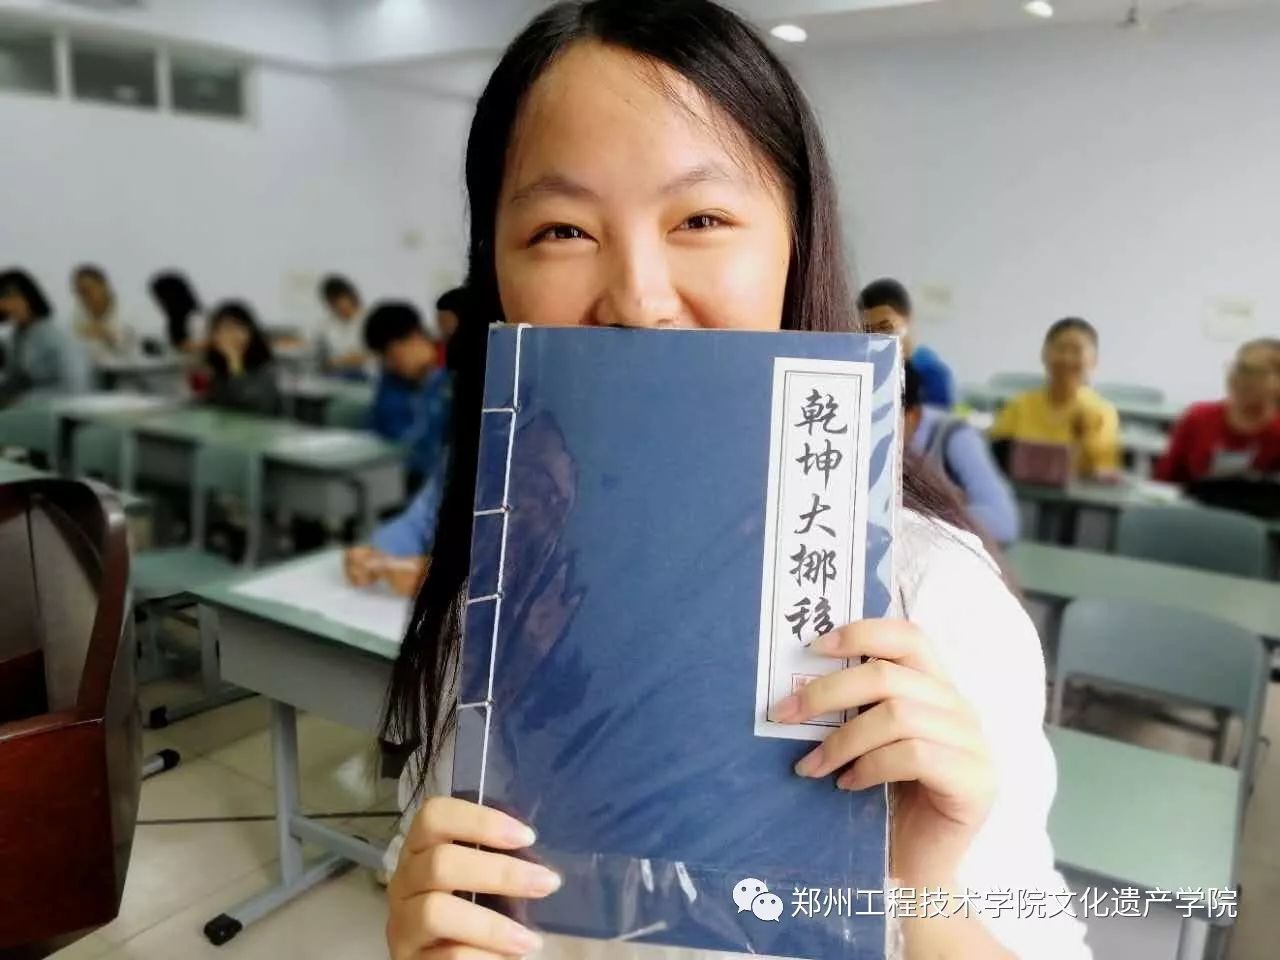 乾坤大挪移
郑州工程技术学院文化遗产学院